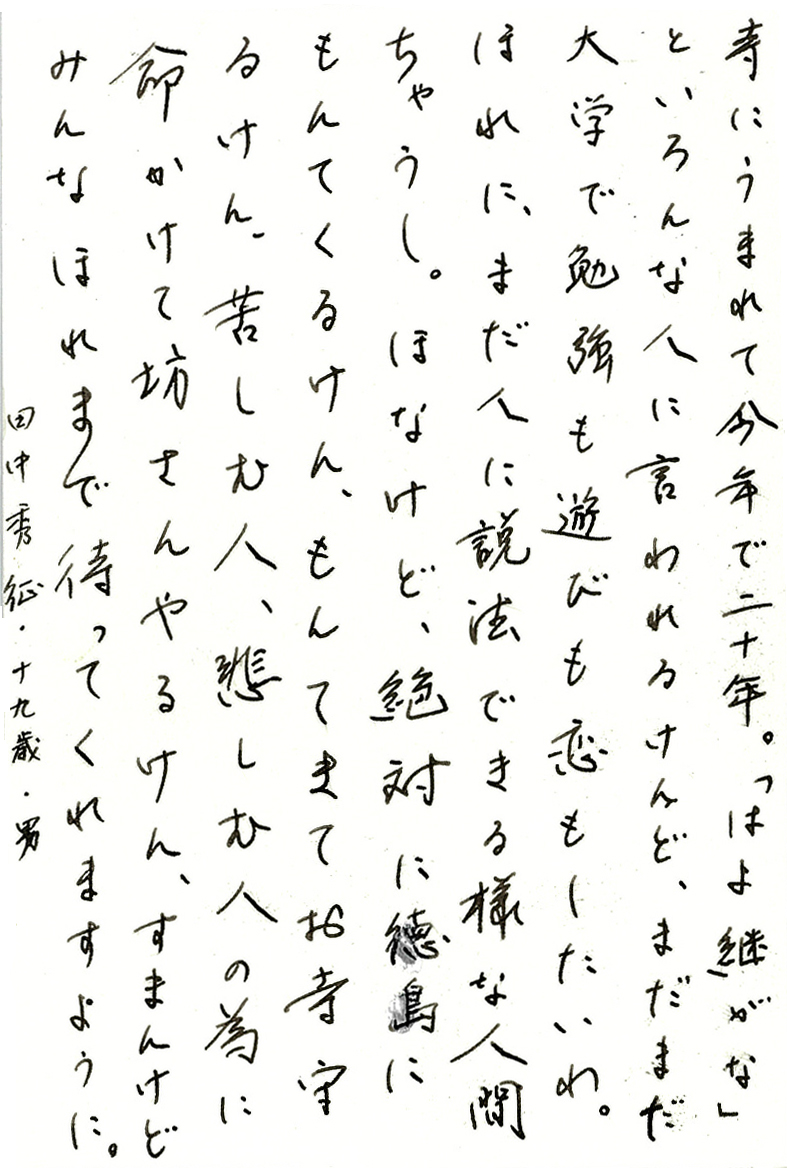 寺にうまれて今年で二十年。「はよ継がな」
といろんな人に言われるけんど、まだまだ
大学で勉強も遊びも恋もしたいわ。
ほれに、まだ人に説法できる様な人間
ちゃうし。ほなけど、絶対に徳島に
もんてくるけん、もんてきてお寺守
るけん、苦しむ人、悲しむ人の為に
命かけて坊さんやるけん、すまんけど
みんなほれまで待ってくれますように。
田中秀征・十九歳・男